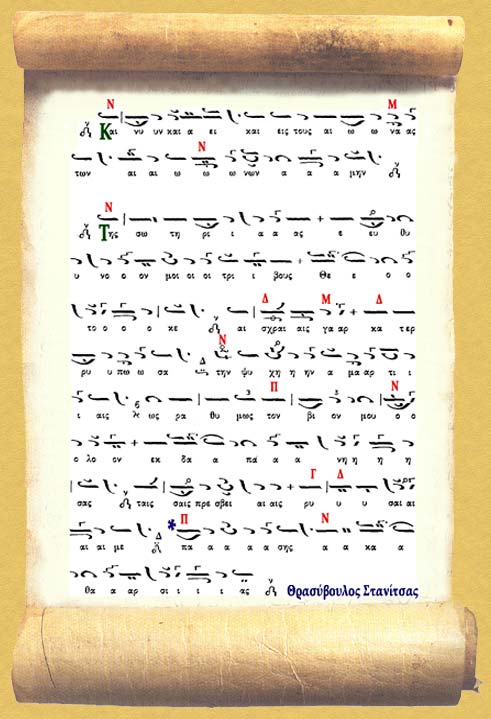 Ν Μ
Και νυ υν και α ει και εις τους αι ω ω να ας
Ν
των αι αι ω ω νων α α α μην
Ν
Της σω τη ρι ι α α ας ε ευ θυ
υ νο ο ον μοι οι οι τρι ι βους Θε ε ο ο
Δ Μ Δ
το ο ο ο κε αι σχραις γα αρ κα τερ
Ν
ρυ υ πω ω σα την ψυ χη η ην α μα αρ τι ι
Π Ν
ι αις κ ως ρα θυ μως τον βι ον μου ο ο
ο λο ον εκ δα α πα α α νη η η η
Γ Δ
σας ταις σαις πρε σβει αι αις ρυ υ υ σαι αι
* Π Ν
αι αι με πα α α α α σης α α κα α
θα α αρ σι ι ι ας Θρασύβουλος Στανίτσας